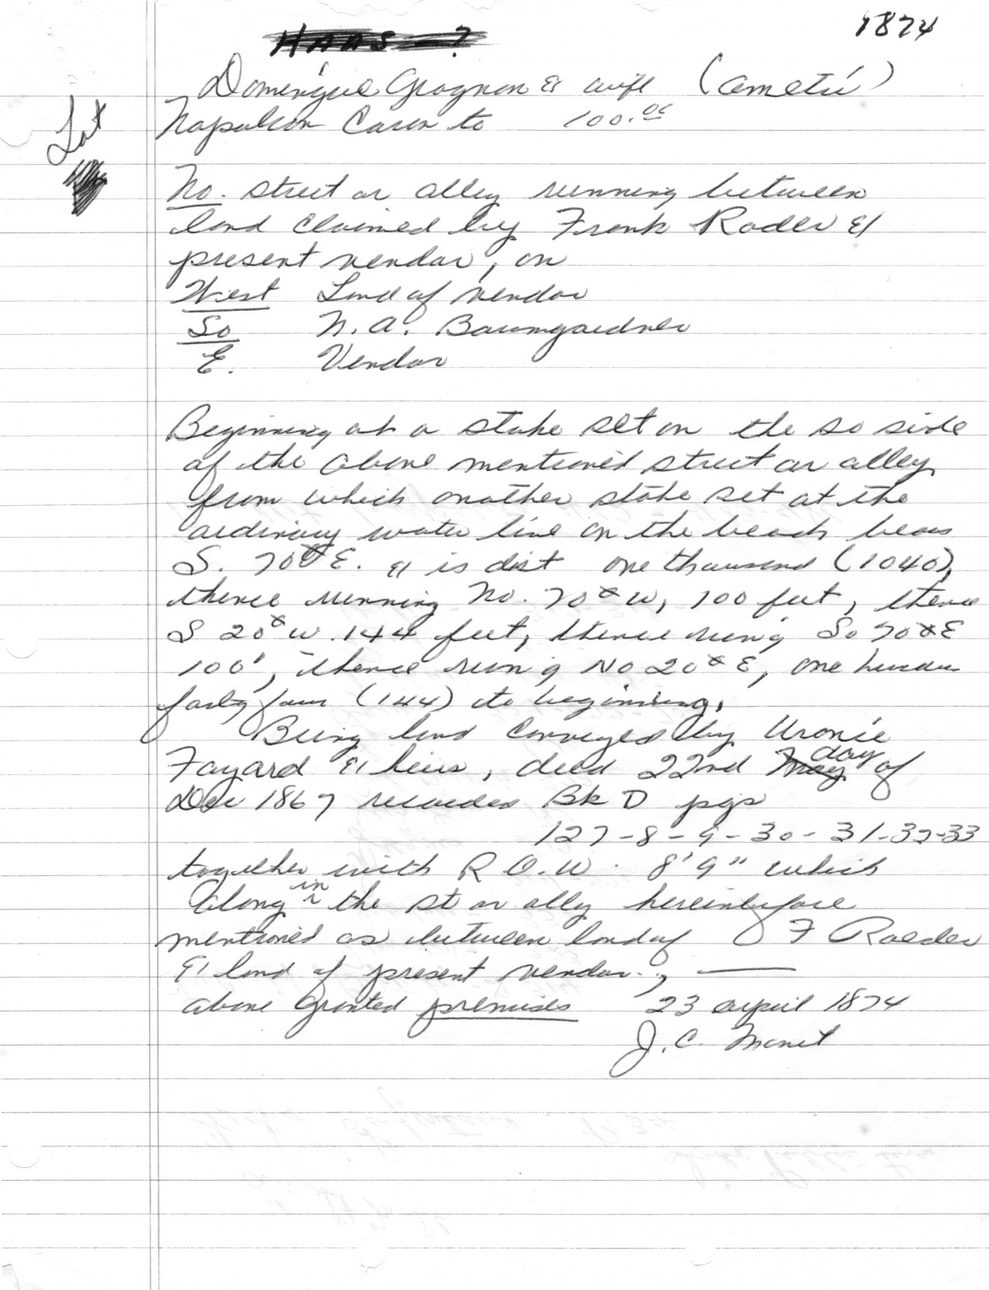 1874
HAAS - ?
Domenique Grognon & wife (Ametie)
Napoleon Caron to 100.00
Lot
No. street or alley running between
land claimed by Frank Rader &
present vendor, on
West Land of vendor
So N. A. Baumgardner
E. Vendor
Beginning at a stake set on the so side
of the above mentioned street or alley
from which another stake set at the
ordinary water line on the beach bears
S. 70° E. & is dist one thousand (1040),
thence running No. 70° W, 100 feet, thence
S 20° W. 144 feet, thence run'g So 70° E
100', thence run'g No 20° E, one hundre
forty four (144) to beginning.
Being land conveyed by Uronie
Fayard & heirs, deed 22nd May day of
Dec 1867 recorded Bk D pgs
127-8-9-30-31-32-33
together with R.O.W. 8'9" which
along in the st or ally hereinbefore
mentioned as between land of F Raeder
& land of present vendor.,
above granted premises 23 april 1874
J. C. Monet